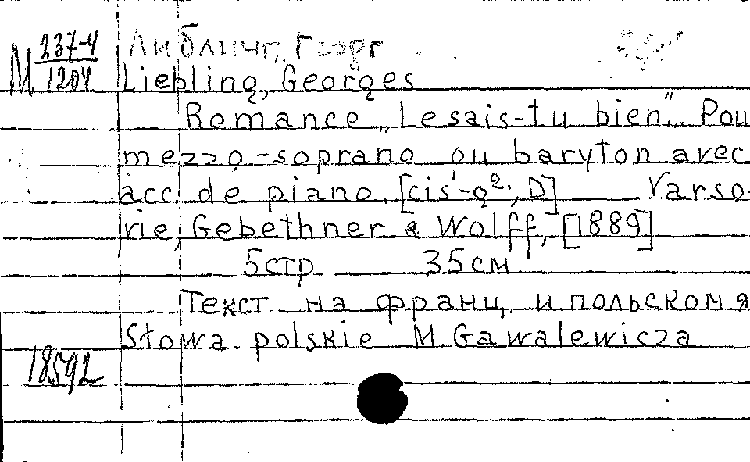 М 237-4/1204
Либлинг, Георг
Liebling, Georges
Romance „Le sais-tu bien“. Pou
mezzo-soprano ou baryton avec
acc. de piano. [cis¹-g², D] Varso
vie, Gebethner & Wolff, [1889]
5 стр. 35 см
Текст на франц. и польском я
Słowa polskie M. Gawalewicza
18592